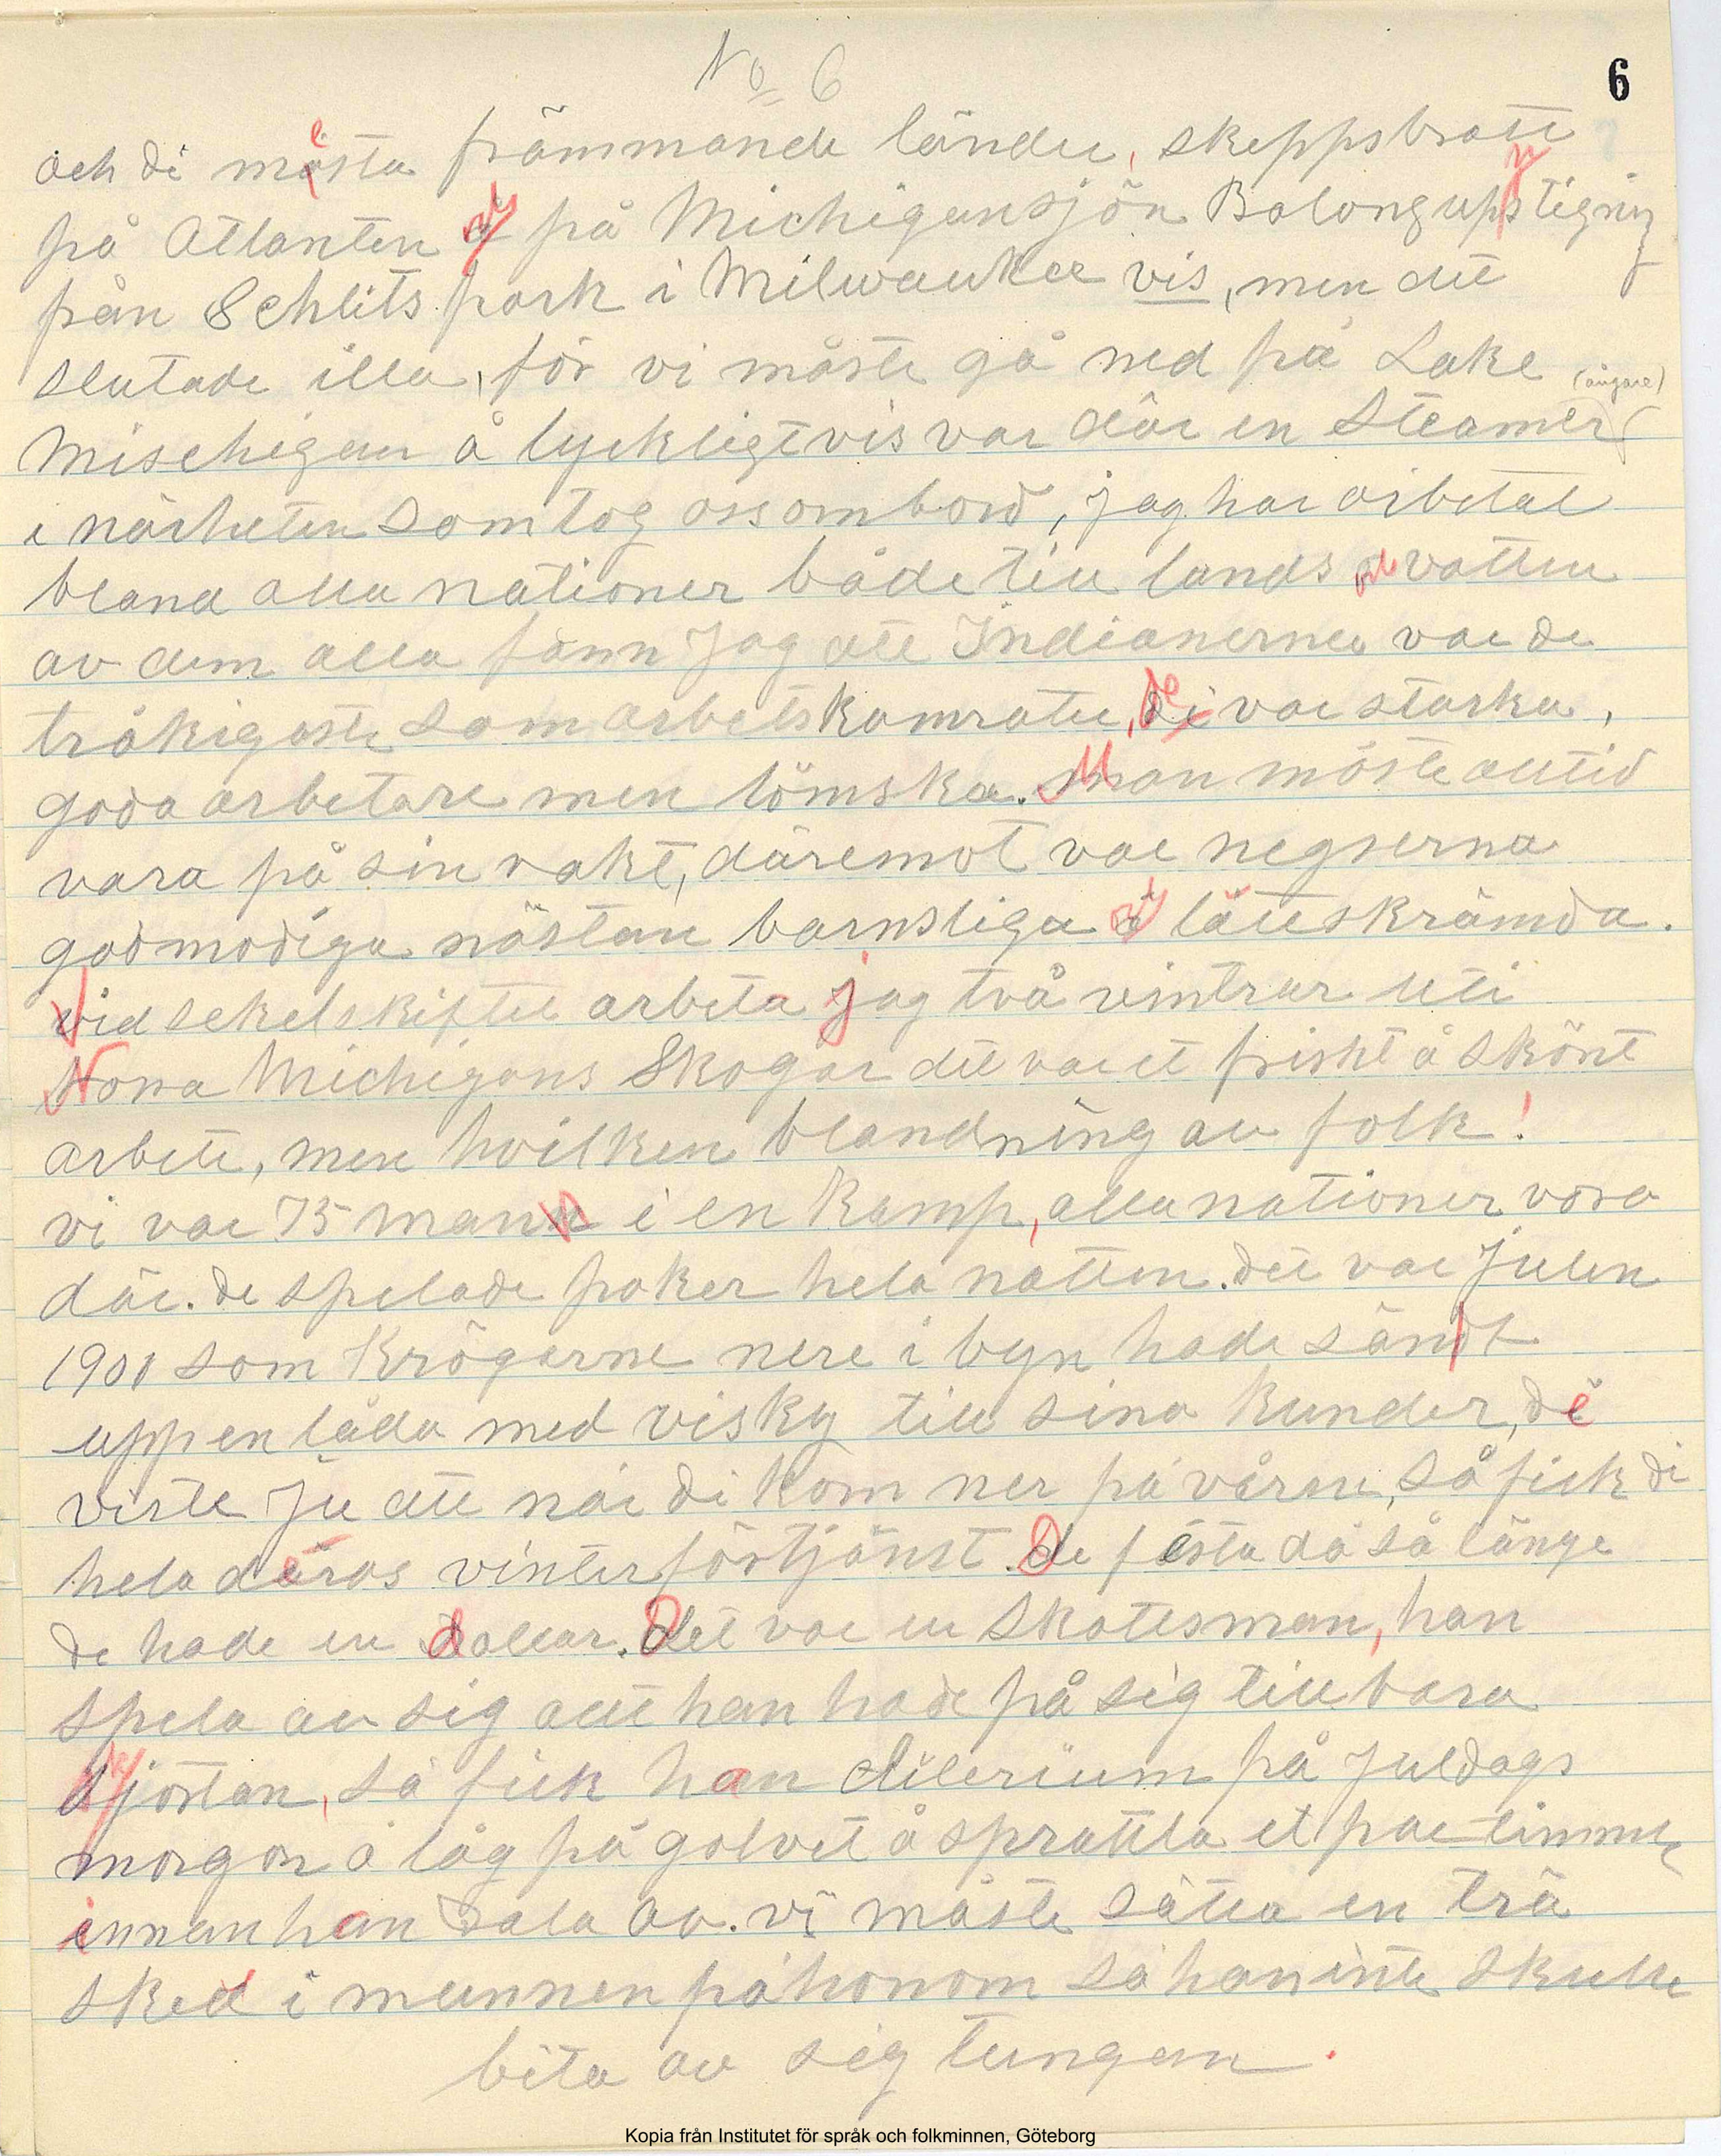 No 6
6
och di mesta främmande länder, skeppsbrott
på Atlanten å på Michigansjön Balonguppstigning
från Schlits park i Milwaukee vis, men det
slutade illa, för vi måste gå ned på Lake (ångare)
Mischigan å lyckligtvis var där en Steamer
i närheten som tog oss ombord, jag har arbetat
bland alla nationer både till lands o vatten
av dem alla fann Jag att Indianerna var de
tråkigaste som arbetskamrater, de var starka,
goda arbetare men lömska. Man måste alltid
vara på sin vakt, däremot var negrerna
godmodiga nästan barnsliga å lättskrämda.
Vid sekelskiftet arbeta jag två vintrar uti
Norra Michigans Skogar det var et friskt å skönt
arbete, men hvilken blandning av folk!
vi var 75 man i en Kamp, alla nationer vora
där. de spelade poker hela natten. det var Julen
1901 som Krögarne nere i byn hade sänt
upp en låda med visky till sina kunder, de
viste Ju att när di kom ner på våren, så fick di
hela deras vinterförtjänst. De festa då så länge
de hade en dollar. Det var en Skotesman, han
spela av sig allt han hade på sig till bara
skjortan, så fick han dilerium på Juldags
morgon å låg på golvet å sprattla et par timmar
innan han dala av. vi måste sätta en trä
sked i munnen på honom så han inte skulle
bita av sig tungan.
Kopia från Institutet för språk och folkminnen, Göteborg